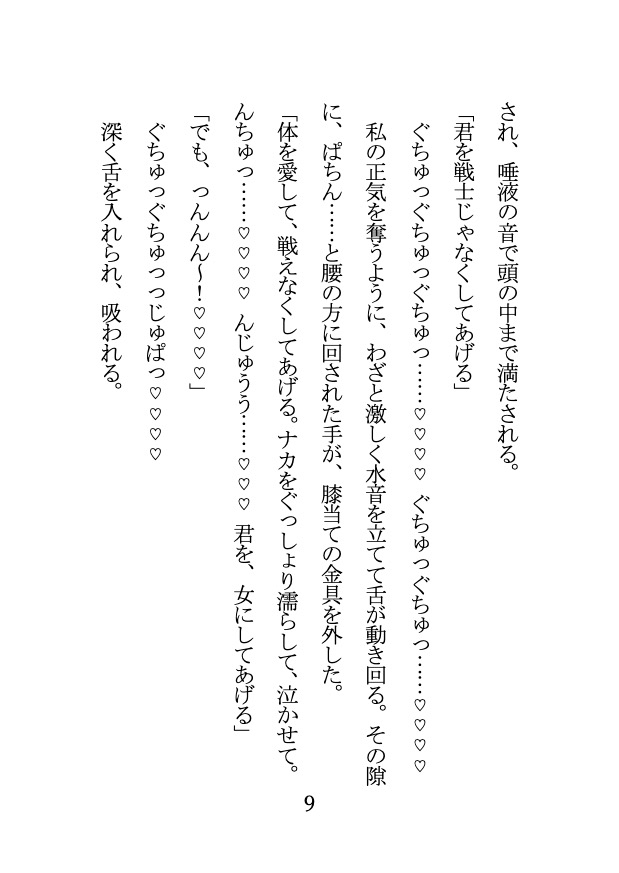 され、唾液の音で頭の中まで満たされる。
「君を戦士じゃなくしてあげる」
ぐちゅっぐちゅっぐちゅっ……♡♡♡♡ ぐちゅっぐちゅっ……♡♡♡♡
私の正気を奪うように、わざと激しく水音を立てて舌が動き回る。その隙
に、ぱちん……と腰の方に回された手が、膝当ての金具を外した。
「体を愛して、戦えなくしてあげる。ナカをぐっしょり濡らして、泣かせて。
んちゅっ……♡♡♡♡ んじゅうう……♡♡♡ 君を、女にしてあげる」
「でも、っんんん～！♡♡♡♡」
ぐちゅっぐちゅっっじゅぱっ♡♡♡♡
深く舌を入れられ、吸われる。
9